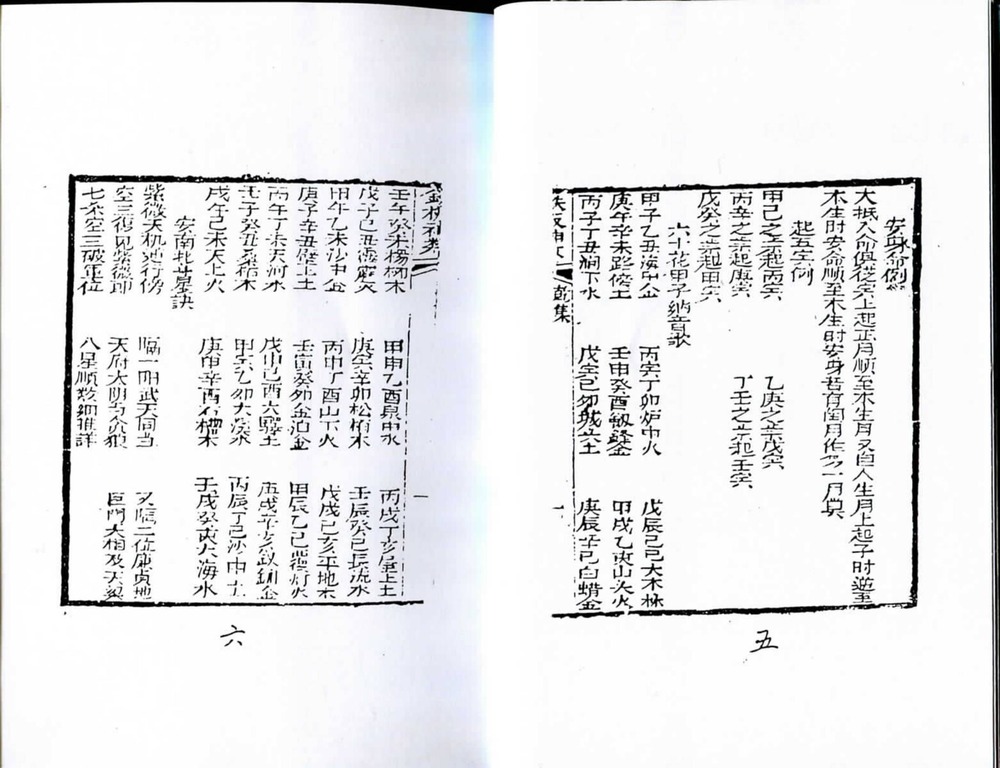 安身命例
大抵人命俱從寅上起正月順至本生月又自人生月上起子時逆至
本生時安命順至本生時安身若有閏月作下一月算
起五寅例
甲己之歲起丙寅 乙庚之歲戊寅
丙辛之歲起庚寅 丁壬之歲起壬寅
戊癸之歲起甲寅
六十花甲子納音歌
甲子乙丑海中金 丙寅丁卯炉中火 戊辰己巳大木林
庚午辛未路傍土 壬申癸酉釼鋒金 甲戌乙亥山头火
丙子丁丑澗下水 戊寅己卯城头土 庚辰辛巳白蜡金
乾集
一
一
壬午癸未楊柳木 甲申乙酉泉中水 丙戌丁亥屋上土
戊子己丑霹靂火 庚寅辛卯松柏木 壬辰癸巳長流水
甲午乙未沙中金 丙申丁酉山下火 戊戌己亥平地木
庚子辛丑壁上土 壬寅癸卯金泊金 甲辰乙巳覆灯火
丙午丁未天河水 戊申己酉大驛土 庚戌辛亥釵釧金
壬子癸丑桑柘木 甲寅乙卯大溪水 丙辰丁巳沙中土
戊午己未天上火 庚申辛酉石榴木 壬戌癸亥大海水
安南北斗星訣
紫微天机逆行傍 隔一陽武天同当 又隔二位廉貞地
空三復見紫微郎 天府太陰与貪狼 巨門天相及天梁
七杀空三破军位 八星順数細推詳
五
六